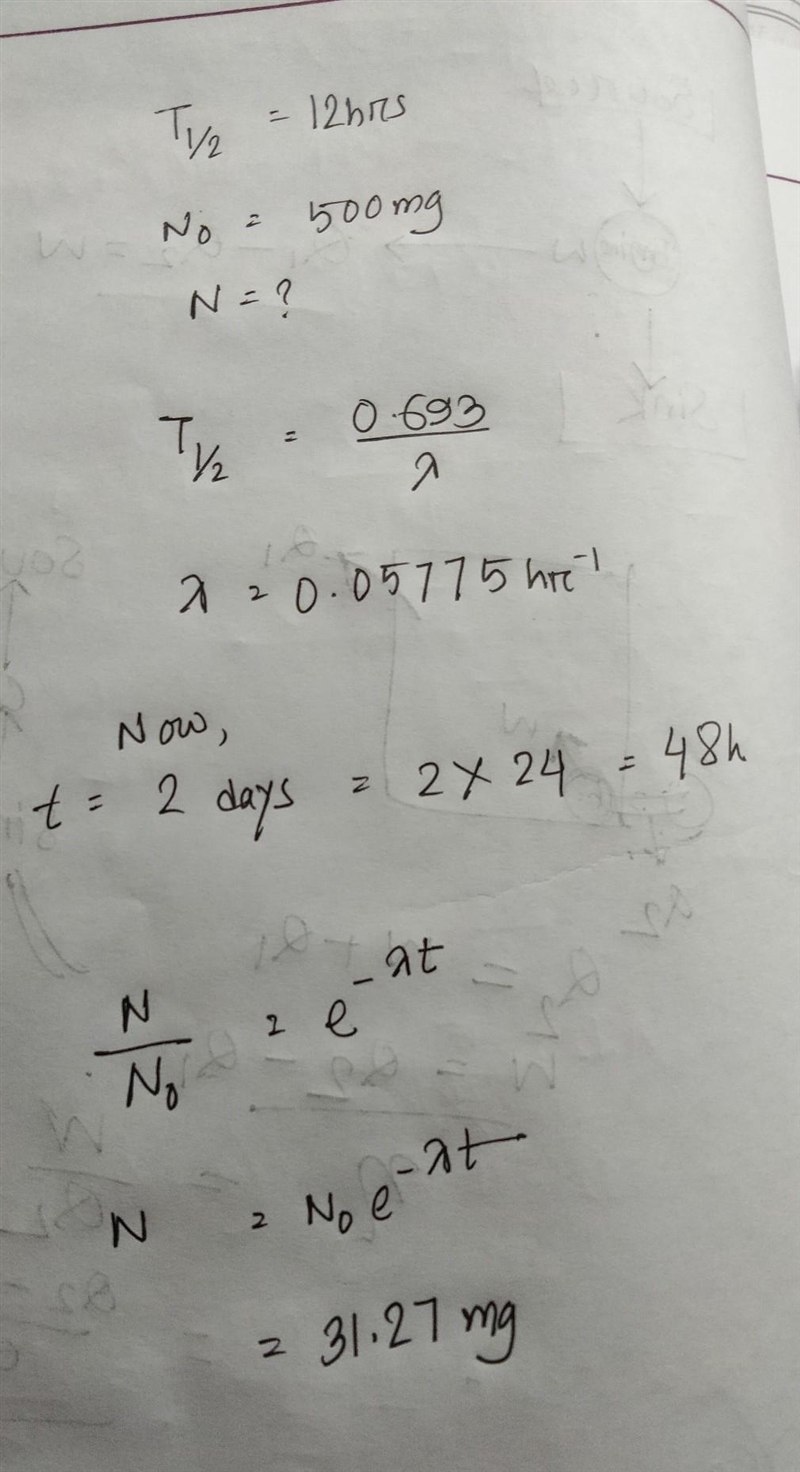 T1/2 = 12hrs
N0 = 500mg
N = ?
T1/2 = 0.693/λ
λ = 0.05775 hr⁻¹
Now,
t = 2 days = 2 × 24 = 48h
N/N0 = e^-λt
N = N0 e^-λt
= 31.27 mg